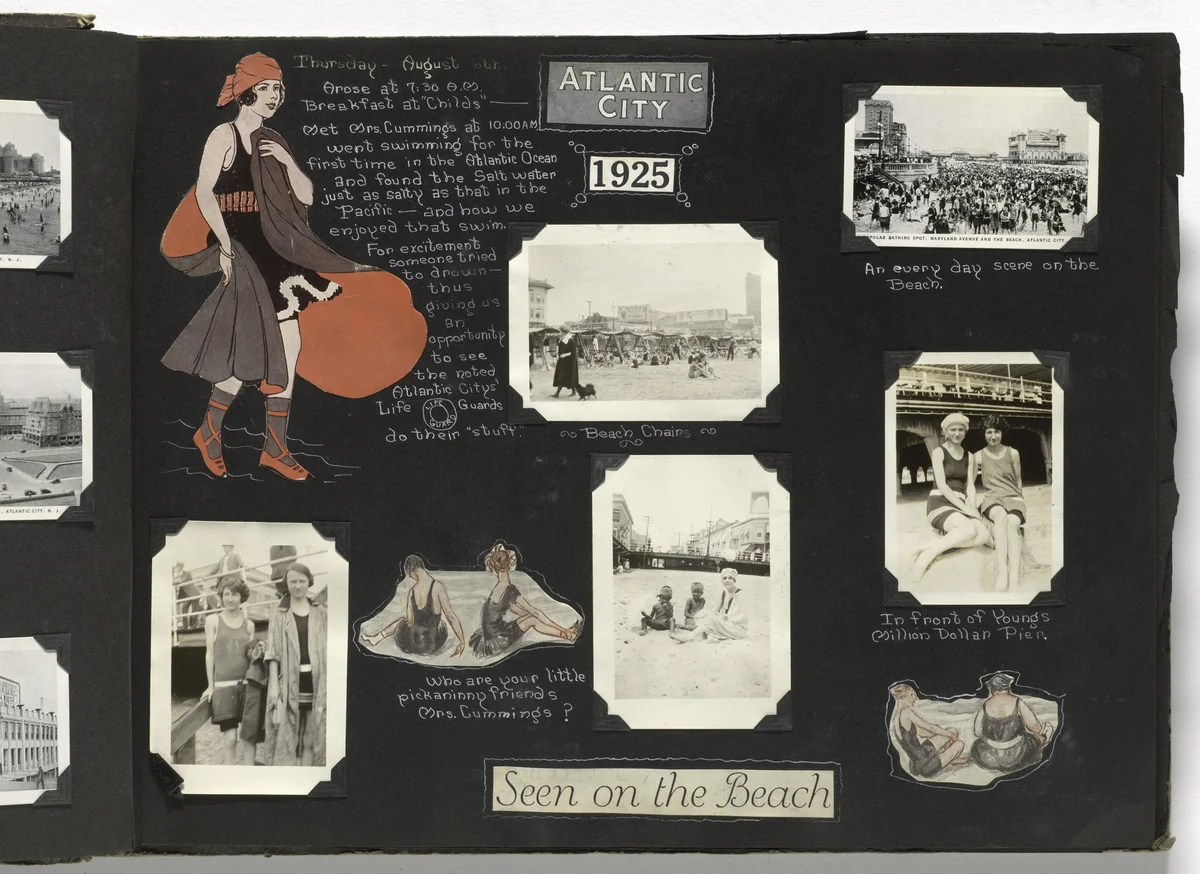 Thursday - August 6th.
Arose at 7:30 A.M.
Breakfast at "Childs" —
Met Mrs. Cummings at 10:00AM
went swimming for the
first time in the Atlantic Ocean
and found the Salt water
just as salty as that in the
Pacific — and how we
enjoyed that swim.
For excitement
someone tried
to drown —
thus
giving us
an
opportunity
to see
the noted
Atlantic Citys'
Life LIFE GUARD Guards
do their "stuff."
ATLANTIC
CITY
1925
Beach Chairs
POPULAR BATHING SPOT, MARYLAND AVENUE AND THE BEACH, ATLANTIC CITY.
An every day scene on the
Beach.
In front of Youngs
Million Dollar Pier.
Who are your little
pickaninny friends
Mrs. Cummings ?
Seen on the Beach
, N. J.
, ATLANTIC CITY, N. J.